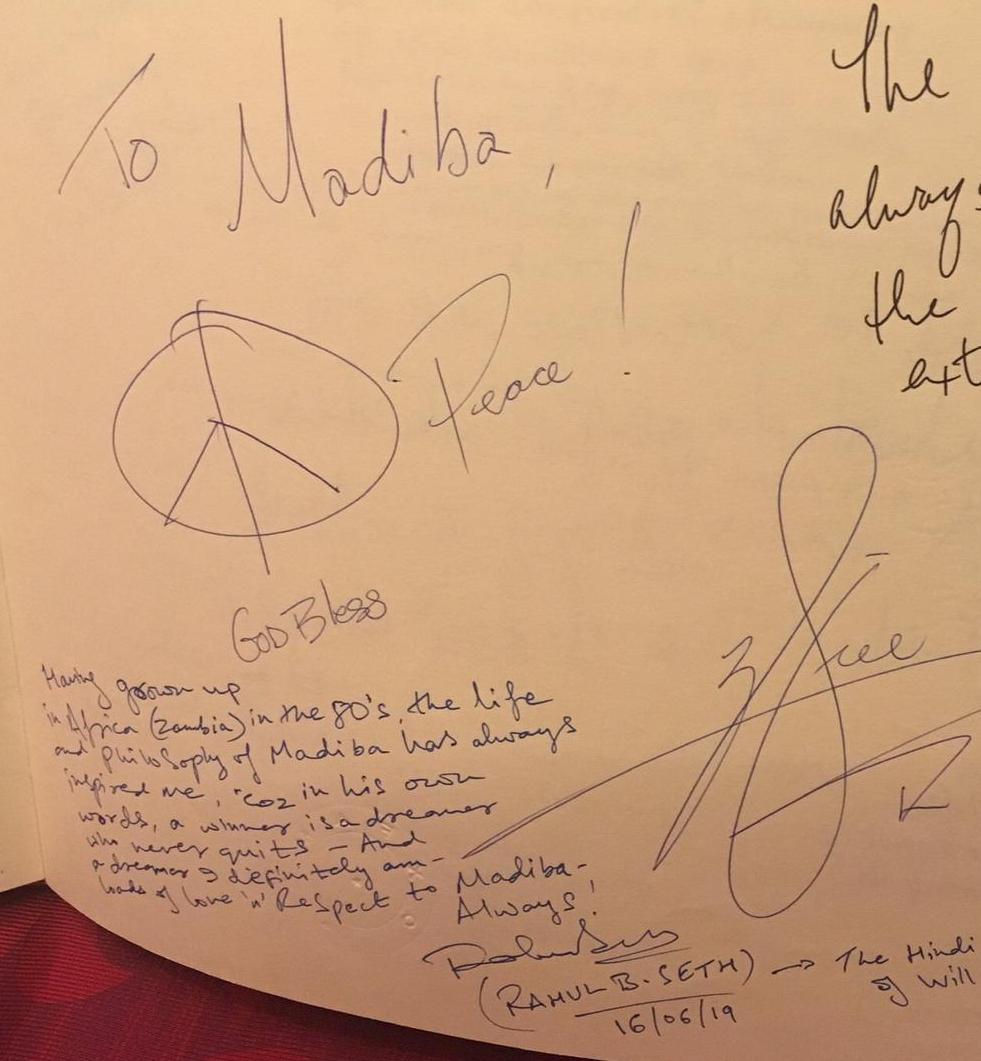 To Madiba,
Peace!
God Bless
Having grown up
in Africa (Zambia) in the 80's, the life
and Philosophy of Madiba has always
inspired me, 'coz in his own
words, a winner is a dreamer
who never quits – And
a dreamer I definitely am –
loads of love 'n' Respect to Madiba –
Always!
(RAHUL B. SETH) → The Hindi
16/06/19 of Will
The
always
the
ext